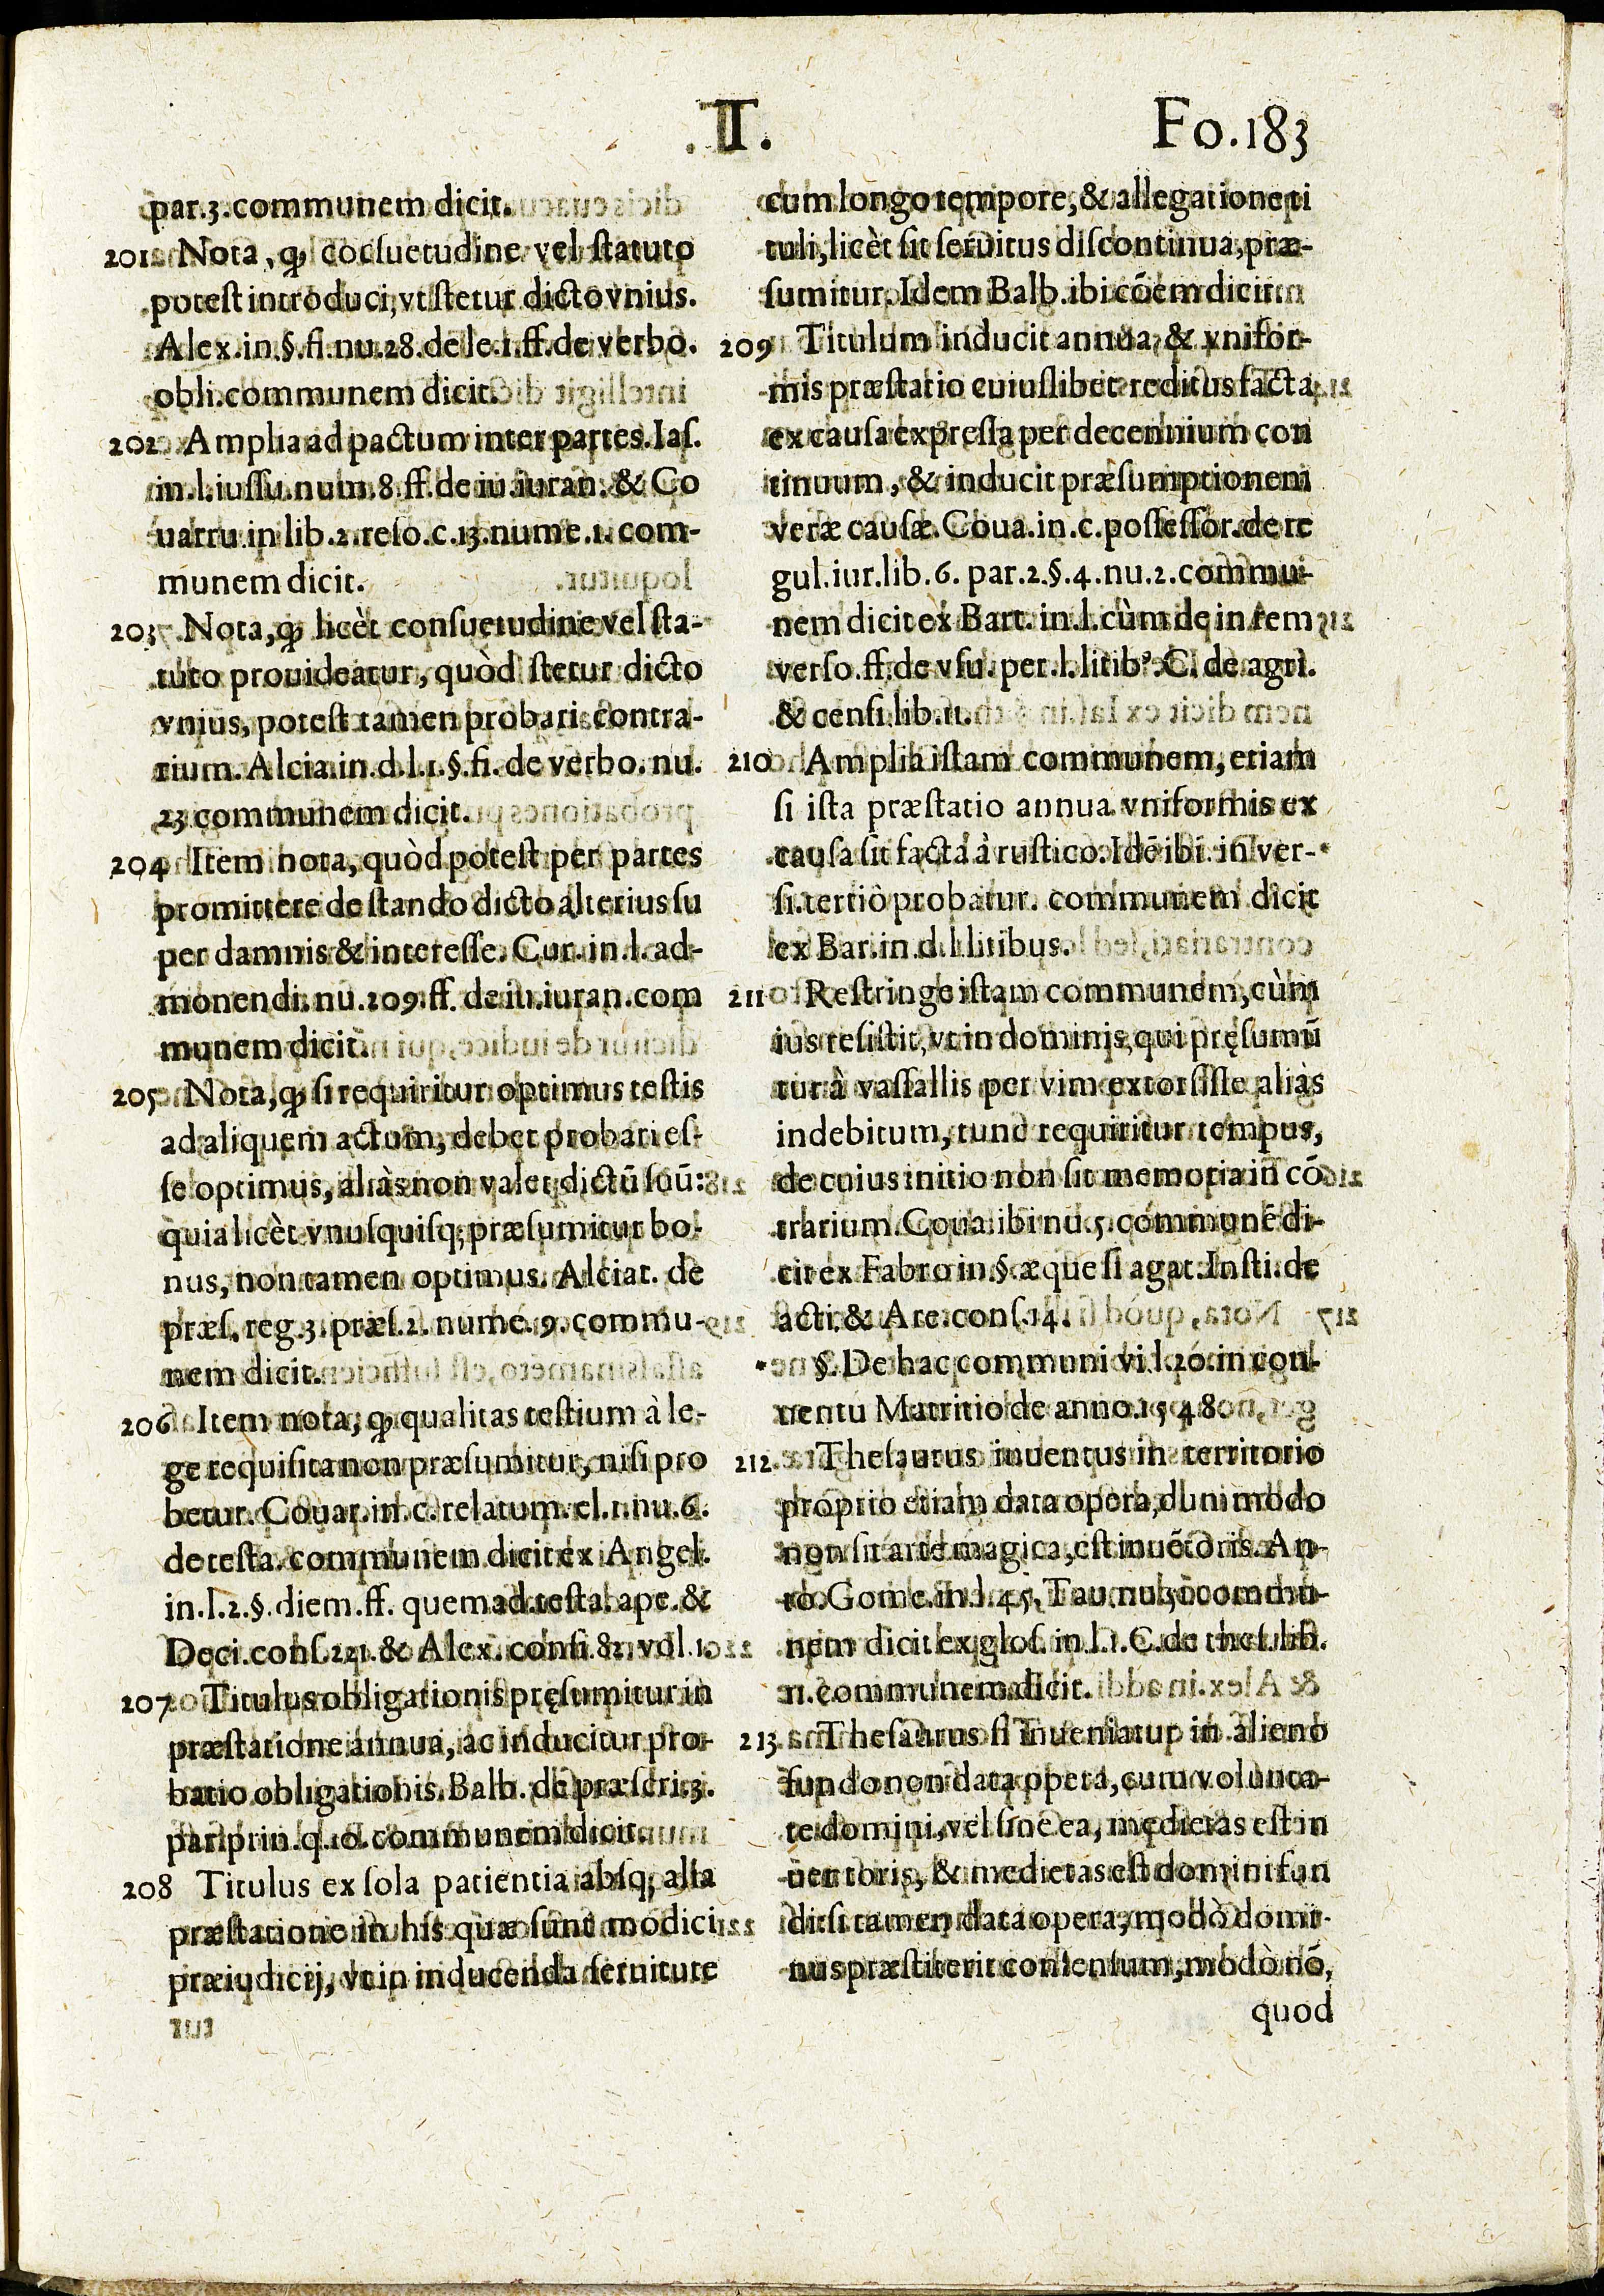 .II.
Fo.183
par.3.communem dicit.
201 Nota, ꝙ cõsuetudine vel statuto
potest introduci, vt stetur dicto vnius.
Alex.in.§.fi.nu.28.de le.1.ff.de verbo.
obli.communem dicit.
202 Amplia ad pactum inter partes. Ias.
in.l.iussu.num.8.ff.de iu.iuran. & Co
uarru.in lib.2.reso.c.13.nume.1. com-
munem dicit.
203 Nota, ꝙ licèt consuetudine vel sta-
tuto prouideatur, quòd stetur dicto
vnius, potest tamen probari contra-
rium. Alcia.in.d.l.1.§.fi. de verbo. nu.
23 communem dicit.
204 Item nota, quòd potest per partes
promittere de stando dicto alterius su
per damnis & interesse. Cur.in.l.ad-
monendi.nu.209.ff.de iu.iuran.com
munem dicit.
205 Nota, ꝙ si requiritur optimus testis
ad aliquem actum, debet probari es-
se optimus, aliàs non valet dictũ suũ:
quia licèt vnusquisq; præsumitur bo-
nus, non tamen optimus. Alciat. de
præs. reg.3.præs.2. nume.9. commu-
nem dicit.
206 Item nota, ꝙ qualitas testium à le-
ge requisita non præsumitur, nisi pro
betur. Couar.in.c.relatum.el.1.nu.6.
de testa. communem dicit ex Angel.
in.l.2.§. diem.ff. quemad.testa.ape.&
Deci.cons.221.& Alex.consi.82.vol.1.
207 Titulus obligationis pręsumitur in
præstatione annua, ac inducitur pro-
batio obligationis. Balb.de præscri.3.
par.prin.q.10.communem dicit.
208 Titulus ex sola patientia absq; alia
præstatione in his quæ sunt modici
præiudicij, vt in inducenda seruitute
cum longo tempore, & allegatione ti
tuli, licèt sit seruitus discontinua, præ-
sumitur. Idem Balb.ibi cõem dicit
209 Titulum inducit annua, & vnifor-
mis præstatio cuiuslibet reditus facta
ex causa expressa per decennium con
tinuum, & inducit præsumptionem
veræ causæ. Coua.in.c.possessor.de re
gul.iur.lib.6. par.2.§.4.nu.2.commu-
nem dicit ex Bart. in.l.cùm de in rem
verso.ff.de vsu. per.l.litibꝰ.C. de agri.
& censi.lib.11.
210 Amplia istam communem, etiam
si ista præstatio annua vniformis ex
causa sit facta à rustico. Idẽ ibi. in ver-
si.tertiò probatur. communem dicit
ex Bar.in.d.l.litibus.
211 Restringe istam communem, cùm
ius resistit, vt in dominis, qui pręsumũ
tur à vassallis per vim extorsisse aliàs
indebitum, tunc requiritur tempus,
de cuius initio non sit memoria in cõ
trarium. Coua.ibi nu.5.communẽ di-
cit ex Fabro in.§.æque si agat. Insti.de
acti.& Are.cons.14.
§. De hac communi vi.l.20.in con-
uentu Matritio de anno.1548
212 Thesaurus inuentus in territorio
proprio etiam data opera, dummodo
non sit arte magica, est inuẽtoris. An-
to.Gome.in.l.45.Tau.nu. commu-
nem dicit ex glos. in.l.1.C.de thes.lib.
11.communem dicit.
213 Thesaurus si inueniatur in alieno
fundo non data opera, cum volunta-
te domini, vel sine ea, medietas est in
uentoris, & medietas est domini fun
di: si tamen data opera, modò domi-
nus præstiterit consensum, modò nõ,
quod